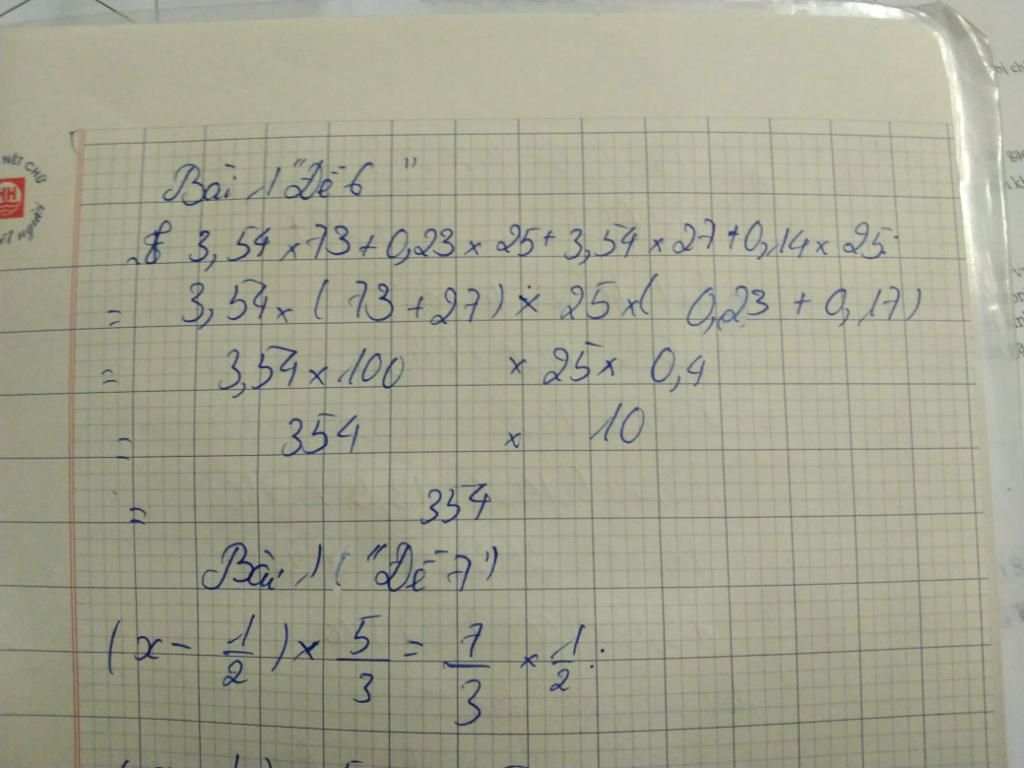 NÉT CHỮ
HH
Bài 1 "Đề 6 "
3,54 × 73 + 0,23 × 25 + 3,54 × 27 + 0,14 × 25
= 3,54 × ( 73 + 27 ) × 25 × ( 0,23 + 0,17 )
= 3,54 × 100 × 25 × 0,4
= 354 × 10
= 354
Bài 1 ( "Đề 7")
( x - 1/2 ) × 5/3 = 7/3 × 1/2 :